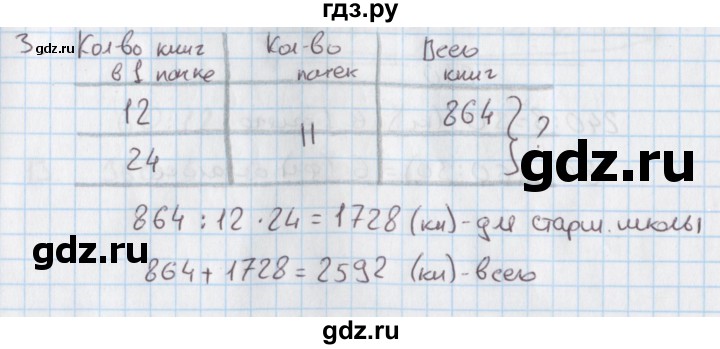 гдз.ру
3 Кол-во книг Кол-во Всего
в 1 пачке пачек книг
12 864
24 || ?
864 : 12 · 24 = 1728 (кн) - для старш. школы
864 + 1728 = 2592 (кн) - всего
gdz.ru
gdz.ru
gdz.ru
gdz.ru
gdz.ru